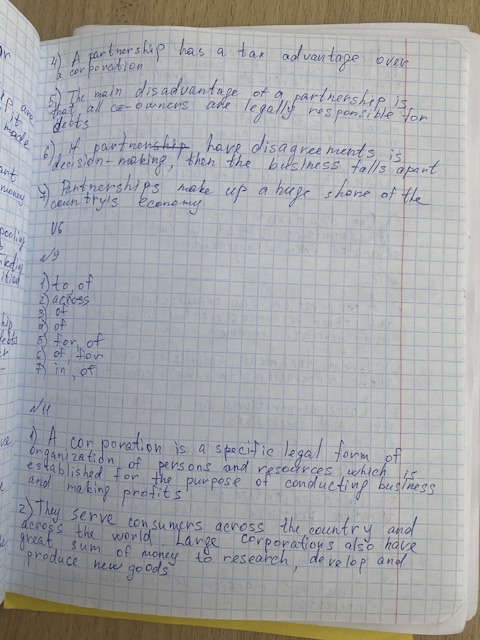 4) A partnership has a tax advantage over
a corporation
5) The main disadvantage of a partnership is
that all co-owners are legally responsible for
debts
6) If partnership have disagreements is
decision-making, then the business falls apart
7) Partnerships make up a huge share of the
country's economy
V6
№9
1) to, of
2) across
3) of
4) of
5) for, of
6) of, for
7) in, of
№11
1) A corporation is a specific legal form of
organization of persons and resources which is
established for the purpose of conducting business
and making profits
2) They serve consumers across the country and
across the world. Large corporations also have
great sum of money to research, develop and
produce new goods